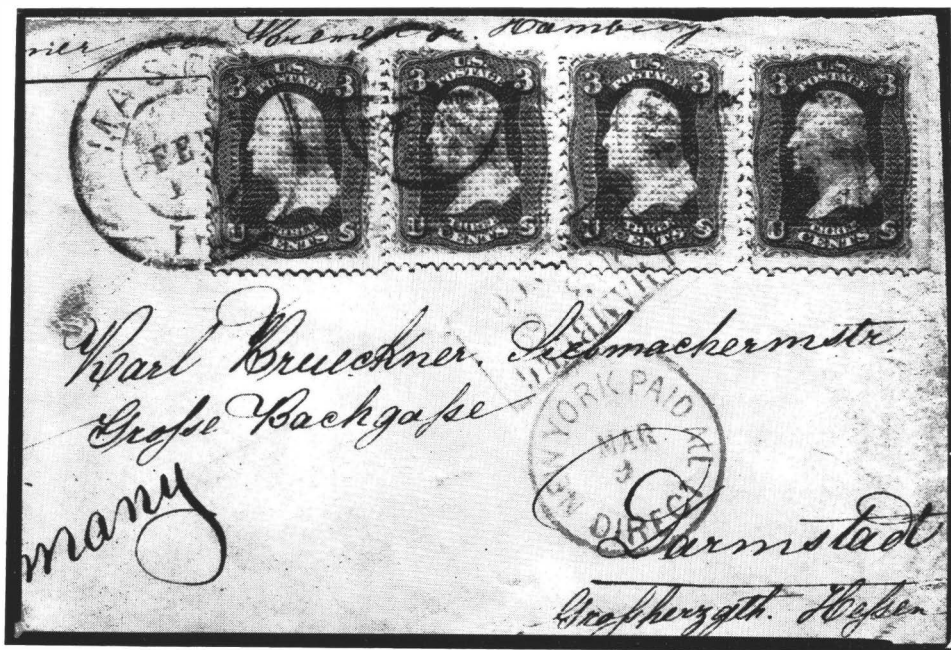 Bremen or Hamburg.
WASH
FE
3 U.S. POSTAGE 3
U THREE CENTS S
3 U.S. POSTAGE 3
U THREE CENTS S
3 U.S. POSTAGE 3
U THREE CENTS S
3 U.S. POSTAGE 3
U THREE CENTS S
Karl Brueckner. Siebmachermstr
Große Bachgaße
NEW YORK PAID ALL
MAR
3
DIRECT
many
Darmstadt
Großherzgth. Heßen